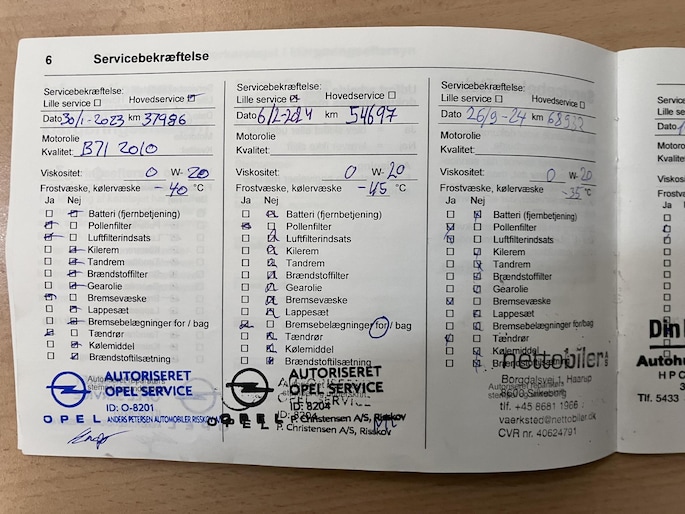 6 Servicebekræftelse
Servicebekræftelse:
Lille service Hovedservice
Dato 30/1-2023 km 37986
Motorolie
Kvalitet: B71 2010
Viskositet: 0 W- 20
Frostvæske, kølervæske -40 °C
Ja Nej
Batteri (fjernbetjening)
Pollenfilter
Luftfilterindsats
Kilerem
Tandrem
Brændstoffilter
Gearolie
Bremsevæske
Lappesæt
Bremsebelægninger for / bag
Tændrør
Kølemiddel
Brændstoftilsætning
AUTORISERET
OPEL SERVICE
ID: O-8201
OPEL ANDERS PETERSEN AUTOMOBILER RISSKOV
Servicebekræftelse:
Lille service Hovedservice
Dato 6/2-2024 km 54697
Motorolie
Kvalitet:
Viskositet: 0 W- 20
Frostvæske, kølervæske -45 °C
Ja Nej
Batteri (fjernbetjening)
Pollenfilter
Luftfilterindsats
Kilerem
Tandrem
Brændstoffilter
Gearolie
Bremsevæske
Lappesæt
Bremsebelægninger for / bag
Tændrør
Kølemiddel
Brændstoftilsætning
AUTORISERET
OPEL SERVICE
ID: 8204
OPEL P. Christensen A/S, Risskov
Servicebekræftelse:
Lille service Hovedservice
Dato 26/9-24 km
Motorolie
Kvalitet:
Viskositet: 0 W- 20
Frostvæske, kølervæske -35 °C
Ja Nej
Batteri (fjernbetjening)
Pollenfilter
Luftfilterindsats
Kilerem
Tandrem
Brændstoffilter
Gearolie
Bremsevæske
Lappesæt
Bremsebelægninger for/bag
Tændrør
Kølemiddel
nettobiler
Borgdalsvej 1, Haarup
8600 Silkeborg
tlf. +45 8681 1966
vaerksted@nettobiler.dk
CVR nr. 40624791
Din
Autoh
H P C
Tlf. 5433